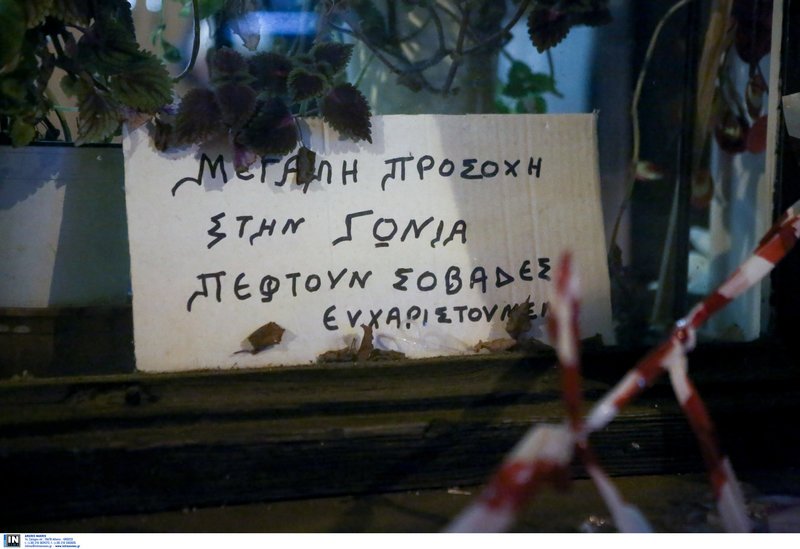 ΜΕΓΑΛΗ ΠΡΟΣΟΧΗ
ΣΤΗΝ ΓΩΝΙΑ
ΠΕΦΤΟΥΝ ΣΟΒΑΔΕΣ
IN